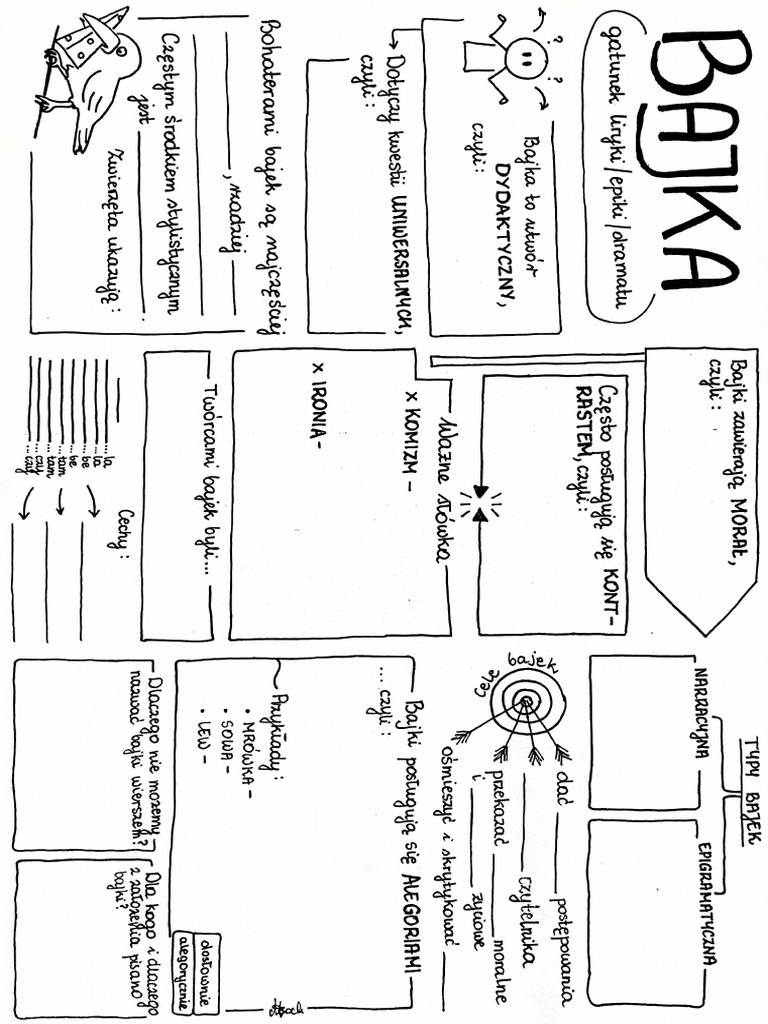 BAJKA
gatunek liryki/epiki/dramatu
? ?
Bajka to utwór
DYDAKTYCZNY,
czyli:
Dotyczy kwestii UNIWERSALNYCH,
czyli:
Bohaterami bajek są najczęściej
, rzadziej
Częstym środkiem stylistycznym
jest
Zwierzęta ukazują:
Bajki zawierają MORAŁ,
czyli:
Często posługują się KONT-
RASTEM, czyli:
Ważne słówka
x KOMIZM -
x IRONIA -
Twórcami bajek byli...
...la
...la
...be
...be
...tam
...tam
...czy
...czy
Cechy:
TYPY BAJEK
NARRACYJNA
EPIGRAMATYCZNA
Cele bajek
dać postępowania
czytelnika
przekazać moralne
i życiowe
ośmieszyć i skrytykować
Bajki posługują się ALEGORIAMI
....czyli:
Przykłady:
• MRÓWKA -
• SOWA -
• LEW -
dosłownie
alegorycznie
Dlaczego nie możemy
nazwać bajki wierszem?
Dla kogo i dlaczego
z założenia pisano
bajki?